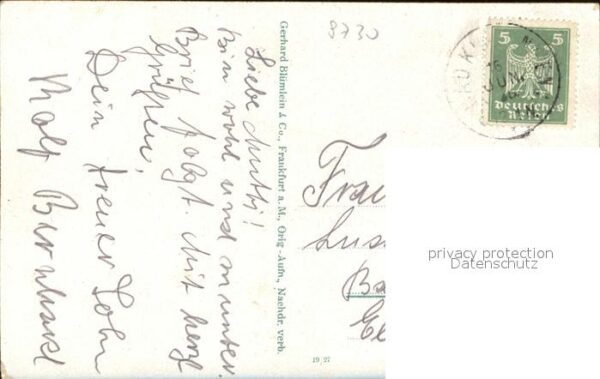 Liebe Mutti!
Bin wohl und munter.
Brief folgt. Mit herzl
Grüßen,
Dein treuer Sohn
Rolf Bernhard
Gerhard Blümlein & Co., Frankfurt a. M., Orig.-Aufn., Nachdr. verb.
19/27
8730
5 5
Deutsches
Reich
JUN
Frau
privacy protection
Datenschutz